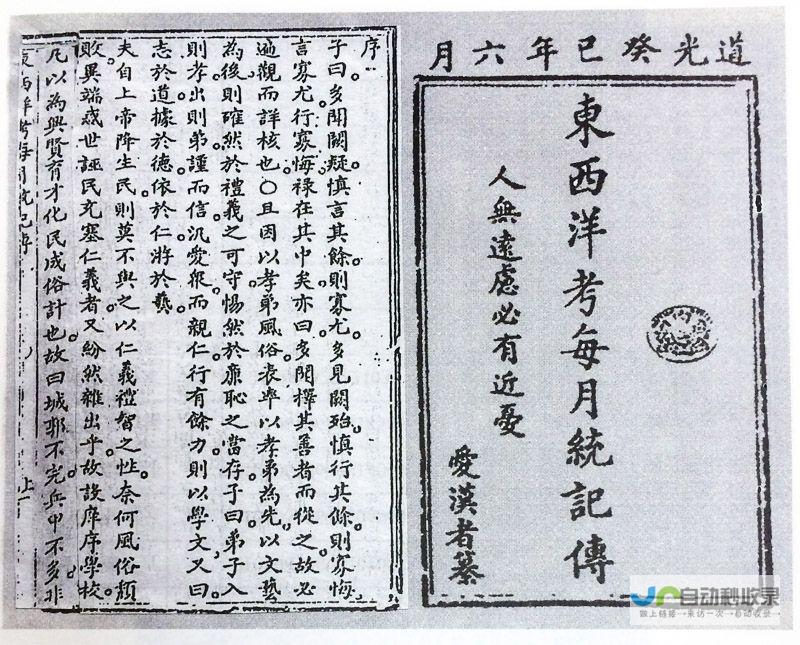 道光癸巳年六月
東西洋考每月統記傳
人無遠慮必有近憂
愛漢者纂
序
子曰。多聞闕疑。慎言其餘。則寡尤。多見闕殆。慎行其餘。則寡悔
言寡尤。行寡悔。祿在其中矣。亦曰。多聞擇其善者而從之。故必
遍觀而詳核也。○且因以孝弟風俗。表率以孝弟為先。以文藝
為後。則確然於禮義之可守。惕然於廉恥之當存。子曰。弟子入
則孝。出則弟。謹而信。汎愛衆。而親仁。行有餘力。則以學文。又曰
志於道。據於德。依於仁。游於藝。
夫自上帝降生民。則莫不與之以仁義禮智之性。奈何風俗頹
敗。異端惑世誣民。充塞仁義者。又紛然雜出乎。故設庠序學校
凡以為興賢育才。化民成俗計也。故曰城郭不完。兵甲不多。非
西洋考每月統記傳
自动秒收录
做上链接→来访一次→自动收录